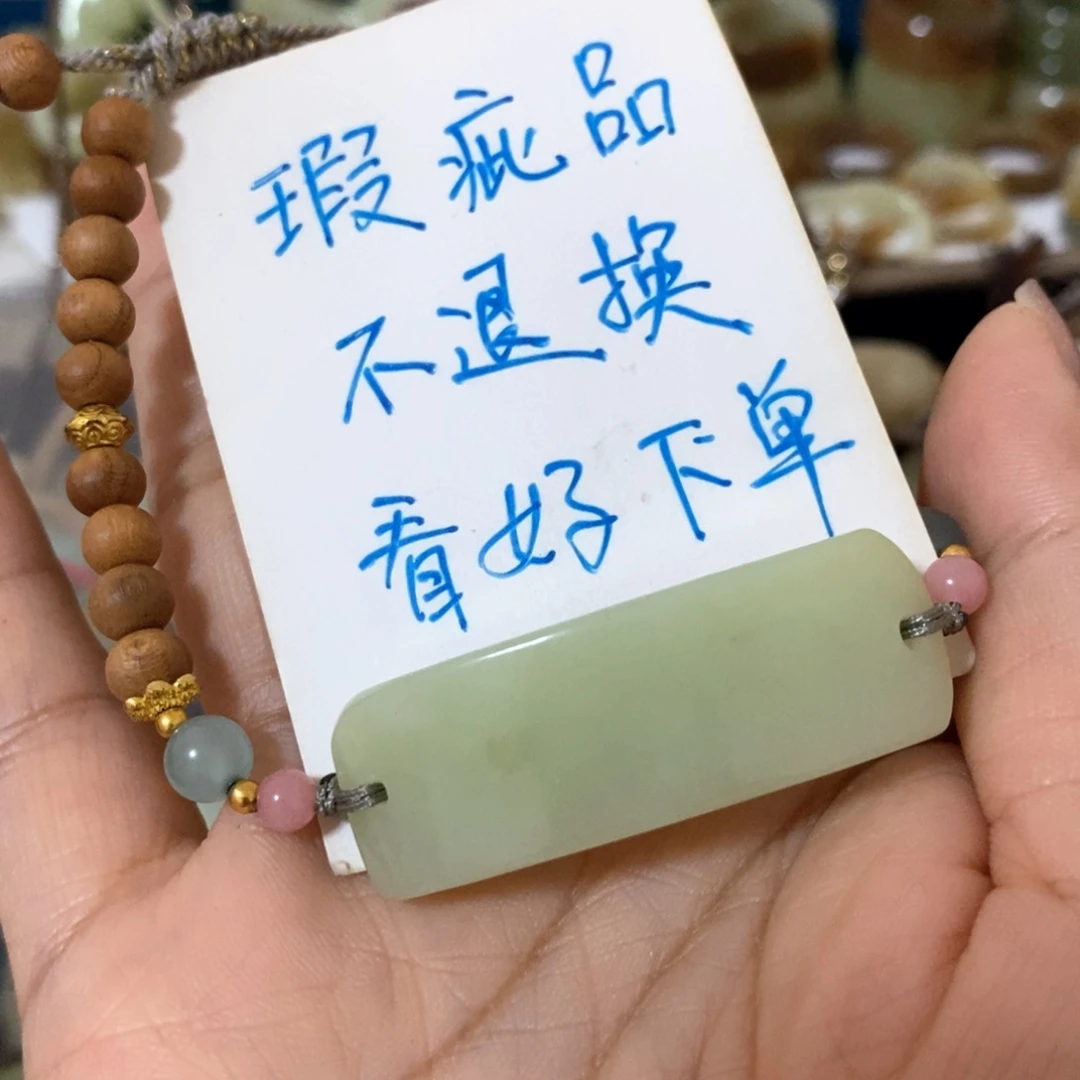 瑕疵品
不退换
看好下单